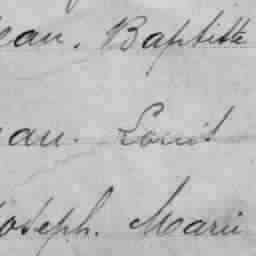 ean. Baptiste
ean. Louis
oseph. Marie